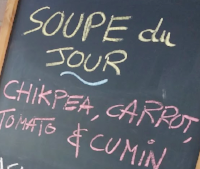 SOUPE du
JOUR
CHIKPEA, CARROT,
TOMATO & CUMIN